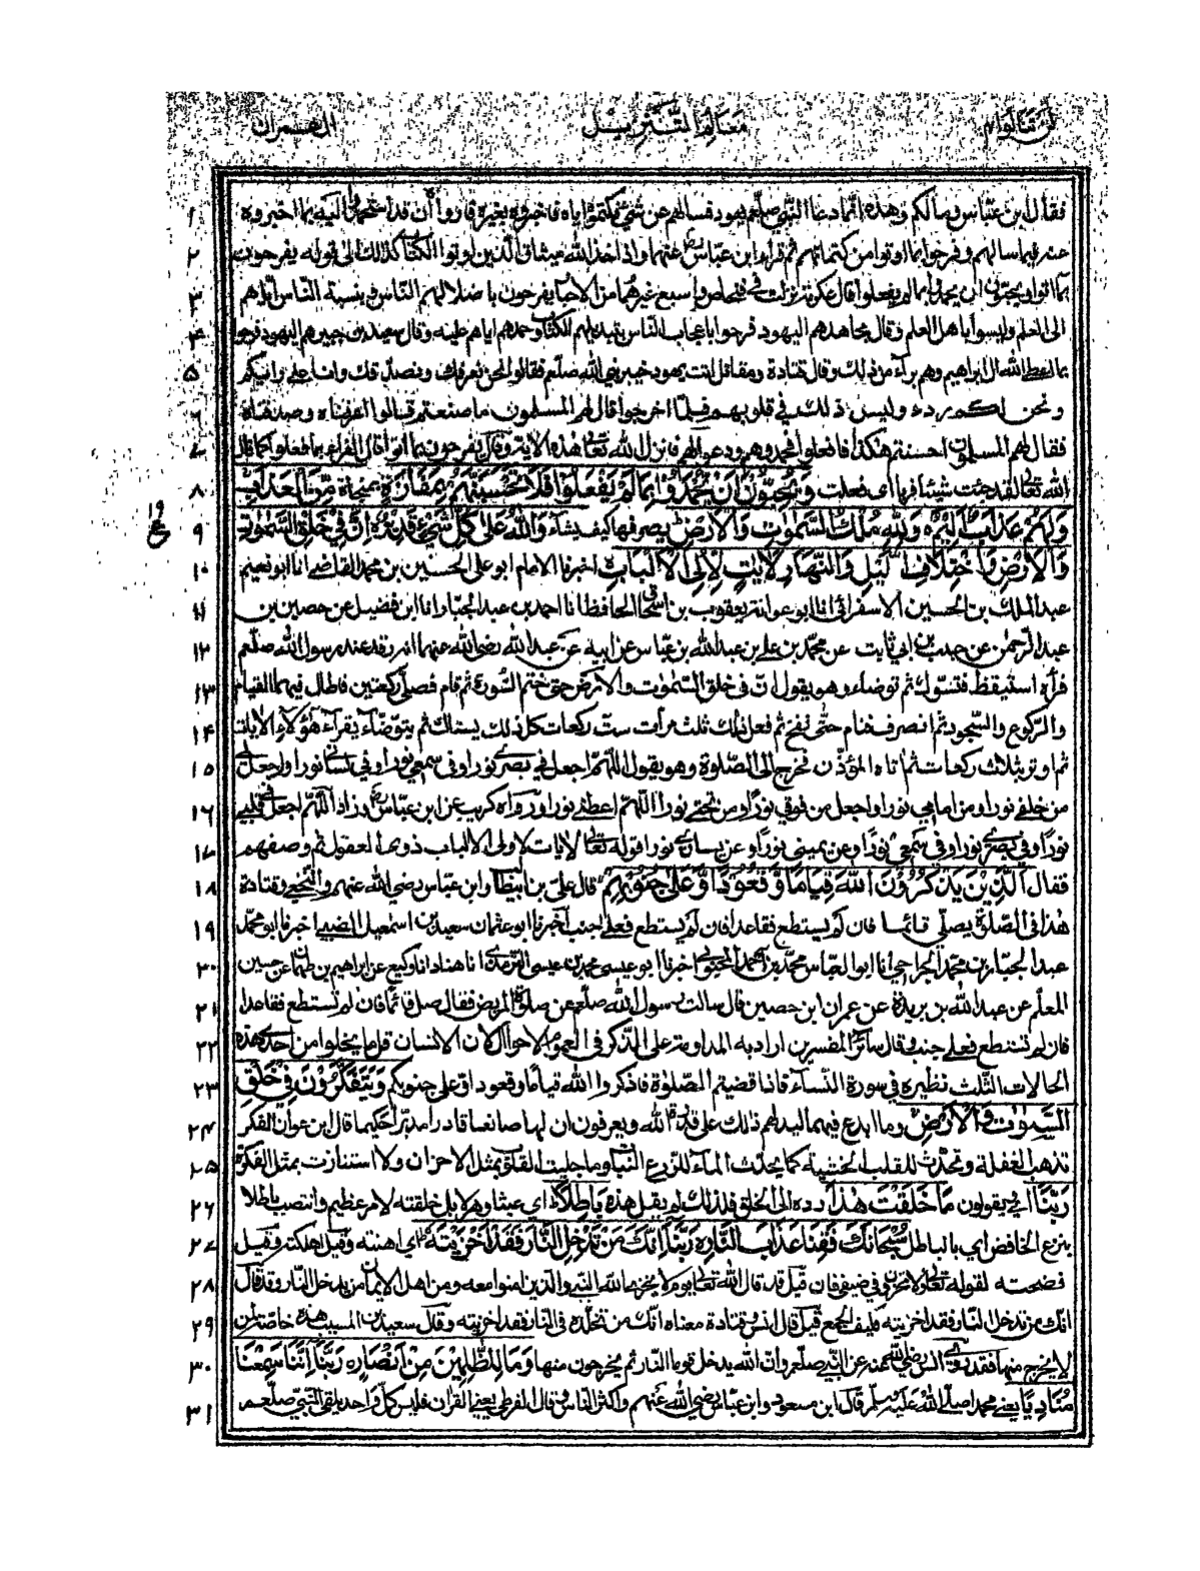 لن تنالوا معالم التنزيل ال عمران
فقال ابن عباس ومالكم وهذه انما دعا النبي صلعم يهود فسالهم عن شئ فكتموه اياه فاخبروه بغيره فاروا ان قد استحمدوا اليه بما اخبروه ١
عنه فيما سالهم وفرحوا بما اوتوا من كتمانهم ثم قرأ ابن عباس رض عنهما واذ اخذ الله ميثاق الذين اوتوا الكتاب كذلك الى قوله يفرحون ٢
بما اتوا ويحبون ان يحمدوا بما لم يفعلوا قال عكرمة نزلت في فنحاص واسيع وغيرهما من الاحبار يفرحون باضلالهم الناس وبنسبة الناس اياهم ٣
الى العلم وليسوا باهل العلم وقال مجاهد هم اليهود فرحوا باعجاب الناس بتبديلهم الكتاب وحمدهم اياهم عليه وقال سعيد بن جبير هم اليهود فرحوا ٤
بما اعطى الله ال ابراهيم وهم برآء من ذلك وقال قتادة ومقاتل اتت يهود خيبر نبي الله صلعم فقالوا نحن نعرفك ونصدقك وانا على رائيكم ٥
ونحن لكم ردء وليس ذلك في قلوبهم فلما اخرجوا قال لهم المسلمون ما صنعتم قالوا عرفناه وصدقناه ٦
فقال لهم المسلمون احسنتم هكذا فافعلوا فحمدوهم ودعوا لهم فانزل الله تعالى هذه الاية وقال يفرحون بما اتوا قال الفراء بما فعلوا كما قال ٧
الله تعالى لقد جئت شيئا فريا اى فعلت وَيُحِبُّونَ اَنْ يُّحْمَدُوْا بِمَا لَمْ يَفْعَلُوْا فَلَا تَحْسَبَنَّهُمْ بِمَفَازَةٍ بمنجاة مِّنَ الْعَذَابِ ٨
وَلَهُمْ عَذَابٌ اَلِيْمٌ وَلِلّٰهِ مُلْكُ السَّمٰوٰتِ وَالْاَرْضِ يصرفها كيف يشاء وَاللّٰهُ عَلٰى كُلِّ شَيْءٍ قَدِيْرٌ اِنَّ فِيْ خَلْقِ السَّمٰوٰتِ ٩
وَالْاَرْضِ وَاخْتِلَافِ اللَّيْلِ وَالنَّهَارِ لَاٰيٰتٍ لِّاُولِى الْاَلْبَابِ اخبرنا الامام ابو على الحسين بن محمد القاضى انا ابو نعيم ١٠
عبد الملك بن الحسين الاسفرائنى انا ابو عوانة يعقوب بن اسحاق الحافظ انا احمد بن عبد الجبار انا ابن فضيل عن حصين بن ١١
عبد الرحمٰن عن حبيب بن ابي ثابت عن محمد بن علي بن عبد الله بن عباس عن ابيه عن عبد الله رضى الله عنهما انه رقد عند رسول الله صلعم ١٢
فرآه استيقظ فتسوك ثم توضاء وهو يقول ان فى خلق السموات والارض حتى ختم السورة ثم قام فصلى ركعتين فاطال فيهما القيام ١٣
والركوع والسجود ثم انصرف فنام حتى نفخ ثم فعل ذلك ثلث مرات ست ركعات كل ذلك يستاك ثم يتوضأ ثم يقرأ هؤلاء الايات ١٤
ثم اوتر بثلاث ركعات ثم اتاه المؤذن فخرج الى الصلوة وهو يقول اللهم اجعل في بصرى نورا وفى سمعي نورا وفي لسانى نورا واجعل لى ١٥
من خلفى نورا ومن امامي نورا واجعل من فوقي نورا ومن تحتى نورا اللهم اعطنى نورا ورواه كريب عن ابن عباس رض وزاد اللهم اجعل فى قلبى ١٦
نورا وفى بصرى نورا وفى سمعي نورا وعن يمينى نورا وعن يسارى نورا قوله تعالى لايات لاولى الالباب ذوى العقول ثم وصفهم ١٧
فقال الَّذِيْنَ يَذْكُرُوْنَ اللّٰهَ قِيَامًا وَّقُعُوْدًا وَّعَلٰى جُنُوْبِهِمْ قال على بن ابيطالب وابن عباس رضي الله عنهم والنخعي وقتادة ١٨
هذا فى الصلوة يصلي قائما فان لم يستطع فقاعدا فان لم يستطع فعلى جنب اخبرنا ابو عثمان سعيد بن اسمعيل الضبى اخبرنا ابو محمد ١٩
عبد الجبار بن محمد الجراحي انا ابو العباس محمد بن احمد المحبوبي اخبرنا ابو عيسى محمد بن عيسى الترمذى انا هناد انا وكيع عن ابراهيم بن طهمان عن حسين ٢٠
المعلم عن عبد الله بن بريدة عن عمران ابن حصين قال سالت رسول الله صلعم عن صلوة المريض فقال صل قائما فان لم تستطع فقاعدا ٢١
فان لم تستطع فعلى جنب وقال سائر المفسرين اراد به المداومة على الذكر فى العموم الاحوال لان الانسان قل ما يخلوا من احدى هذه ٢٢
الحالات الثلث نظيره في سورة النسآء فاذا قضيتم الصلوة فاذكروا الله قياما وقعودا وعلى جنوبكم وَيَتَفَكَّرُوْنَ فِيْ خَلْقِ ٢٣
السَّمٰوٰتِ وَالْاَرْضِ وما ابدع فيهما ليدلهم ذلك على قدرة الله ويعرفون ان لها صانعا قادرا مدبرا حكيما قال ابن عوان الفكر ٢٤
تذهب الغفلة وتحدث للقلب الخشية كما يحدث الماء للزرع النبات وما جليت القلوب بمثل الاحزان ولا استنارت بمثل الفكرة ٢٥
رَبَّنَا اي يقولون مَا خَلَقْتَ هٰذَا رده الى الخلق فلذلك لم يقل هذه بَاطِلًا اي عبثا وهزلا بل خلقته لامر عظيم وانتصب باطلا ٢٦
بنزع الخافض اي بالباطل سُبْحَانَكَ فَقِنَا عَذَابَ النَّارِ رَبَّنَا اِنَّكَ مَنْ تُدْخِلِ النَّارَ فَقَدْ اَخْزَيْتَهُ اي اهنته وقيل اهلكته وقيل ٢٧
فضحته لقوله تعالى ولا تخزون في ضيفى فان قيل قد قال الله تعالى يوم لا يخزى الله النبى والذين امنوا معه ومن اهل الايمان من يدخل النار وقد قال ٢٨
انك من تدخل النار فقد اخزيته فكيف الجمع قيل قال انس وقتادة معناه انك من تخلده فى النار فقد اخزيته وقال سعيد بن المسيب هذه خاصة لمن ٢٩
لا يخرج منها فقد روى انس رضي الله عنه عن النبى صلعم ان الله يدخل قوما النار ثم يخرجون منها وَمَا لِلظّٰلِمِيْنَ مِنْ اَنْصَارٍ رَبَّنَا اِنَّنَا سَمِعْنَا ٣٠
مُنَادِيًا يعنى محمدا صلى الله عليه وسلم قال ابن مسعود وابن عباس رضي الله عنهم واكثر الناس وقال القرظى يعنى القران فليس كل واحد يلقى النبي صلعم ٣١